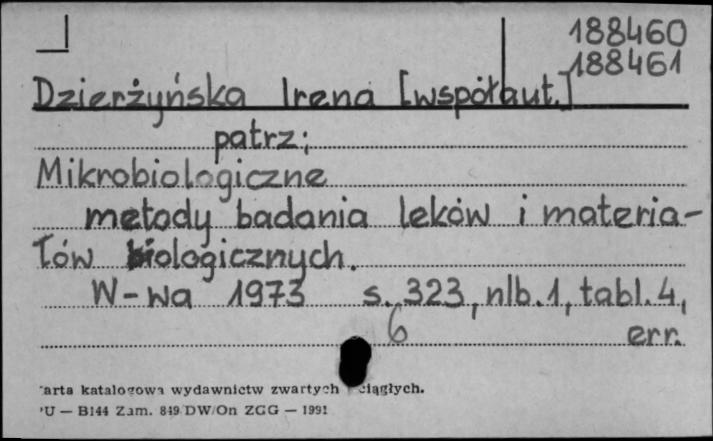 188460
188461
Dzierżyńska Irena [współaut.]
patrz:
Mikrobiologiczne
metody badania leków i materia-
łów biologicznych.
W-wa 1973 s. 323, nlb. 1, tabl. 4,
6 err.
arta katalogowa wydawnictw zwartych ciągłych.
U — B144 Zam. 849/DW/On ZGG — 1991